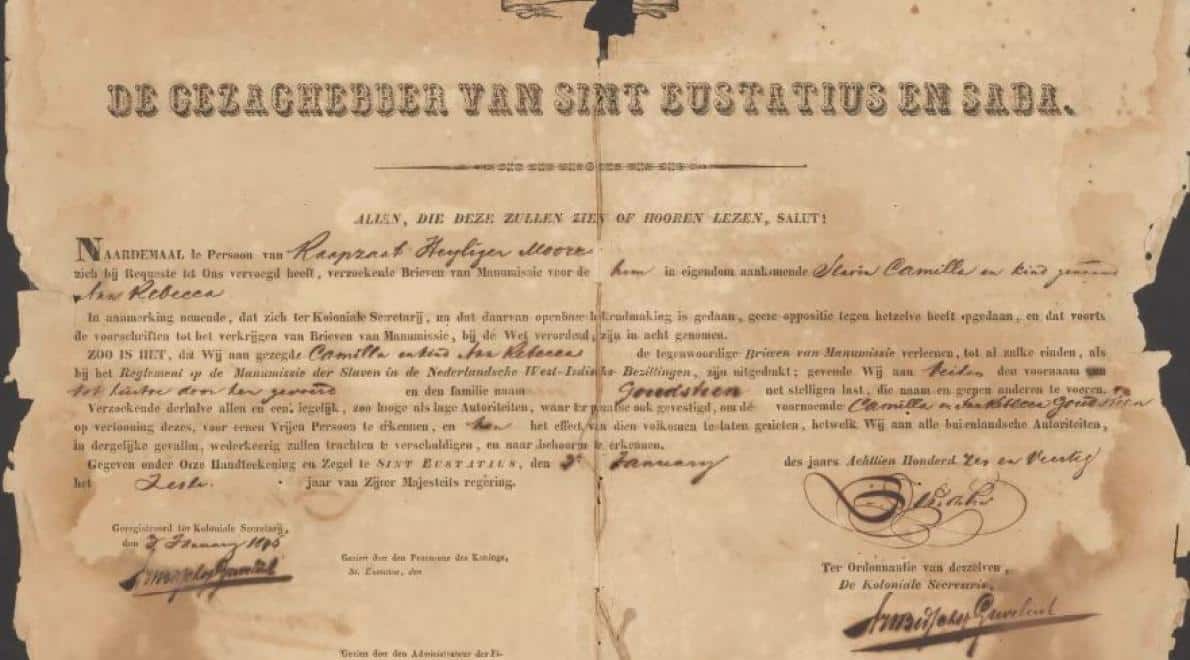 DE GEZAGHEBBER VAN SINT EUSTATIUS EN SABA.
ALLEN, DIE DEZE ZULLEN ZIEN OF HOOREN LEZEN, SALUT!
NAARDEMAAL te Persoon van Raapzaat Heyliger Moore
zich bij Requeste tot Ons vervoegd heeft, verzoekende Brieven van Manumissie voor de hem in eigendom aankomende Slavin Camilla en kind genaamd
Ann Rebecca
In aanmerking nemende, dat zich ter Koloniale Secretarij, na dat daarvan openbare bekendmaking is gedaan, geene oppositie tegen hetzelve heeft opgedaan, en dat voorts
de voorschriften tot het verkrijgen van Brieven van Manumissie, bij de Wet verordend, zijn in acht genomen.
ZOO IS HET, dat Wij aan gezegde Camilla en kind Ann Rebecca de tegenwoordige Brieven van Manumissie verleenen, tot al zulke einden, als
bij het Reglement op de Manumissie der Slaven in de Nederlandsche West-Indische Bezittingen, zijn uitgedrukt; gevende Wij aan beiden den voornaam
tot hiertoe door hen gevoerd en den familie naam Goudstien met stelligen last, die naam en geen anderen te voeren.
Verzoekende derhalve allen en een iegelijk, zoo hooge als lage Autoriteiten, waar ter plaatse ook gevestigd, om de voornoemde Camilla en Ann Rebecca Goudstien
op vertooning dezes, voor eenen Vrijen Persoon te erkennen, en hen het effect van dien volkomen te laten genieten, hetwelk Wij aan alle buitenlandsche Autoriteiten,
in dergelijke gevallen, wederkeerig zullen trachten te verschuldigen, en naar behooren te erkennen.
Gegeven onder Onze Handteekening en Zegel te SINT EUSTATIUS, den 3e January des jaars Achttien Honderd Zes en Veertig
het Zesde jaar van Zijner Majesteits regering.
Geregistreerd ter Koloniale Secretarij,
den 3 January 1846
Gezien door den Procureur des Konings,
St. Eustatius, den
Ter Ordonnantie van derzelven,
De Koloniale Secretaris,
Gezien door den Administrateur der Fi-